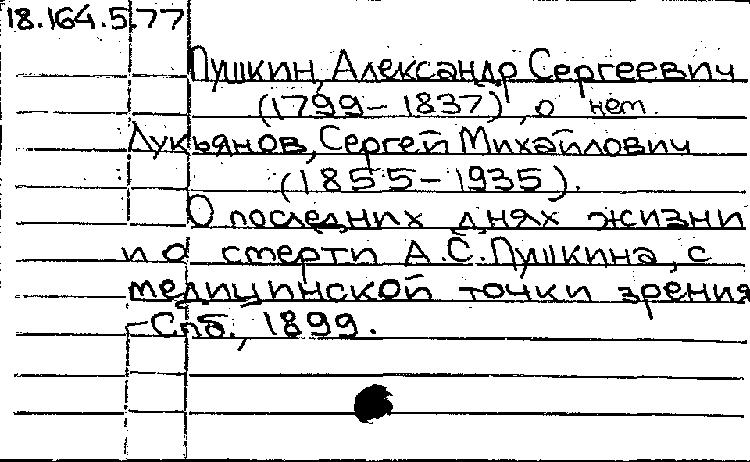 18.164.5.77
Пушкин, Александр Сергеевич
(1799-1837), о нем.
Лукьянов, Сергей Михайлович
(1855-1935).
О последних днях жизни
и о смерти А.С.Пушкина, с
медицинской точки зрения
-Спб., 1899.